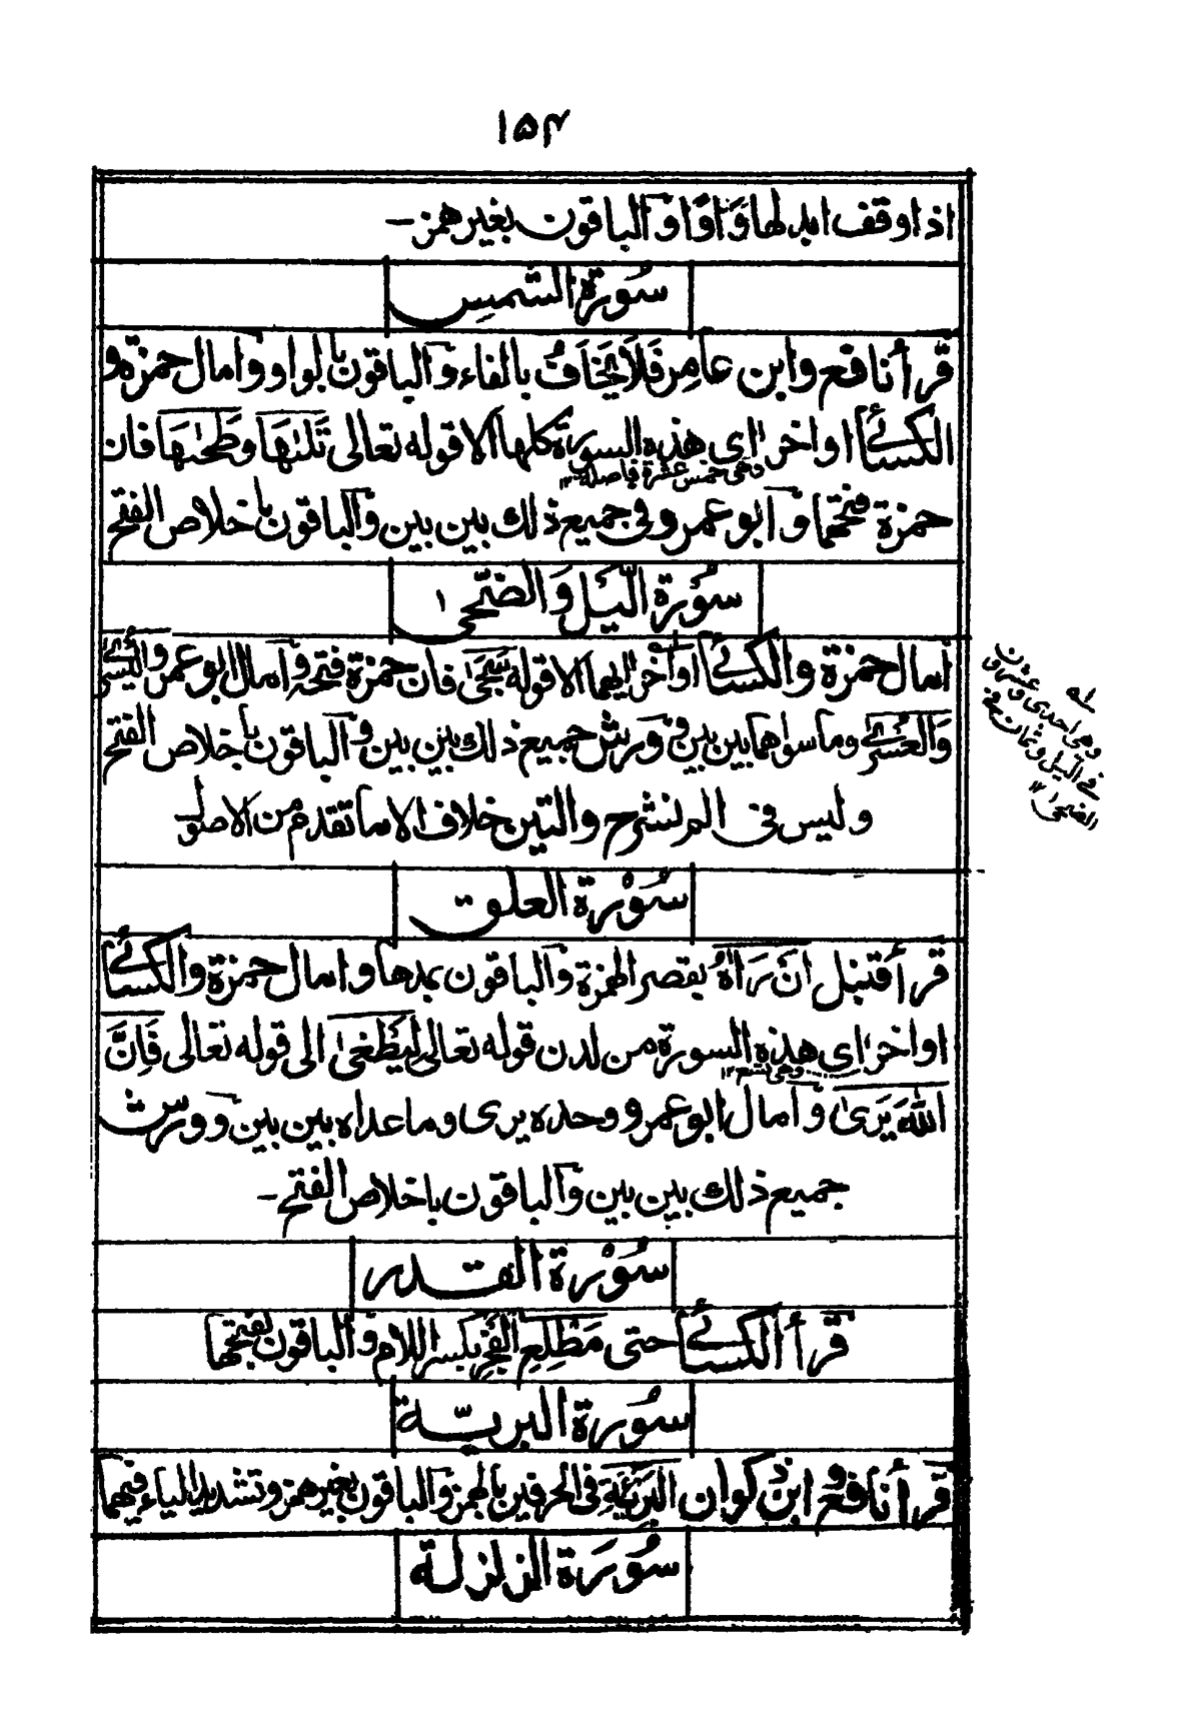 ۱۵۴
اذا وقف ابدلها وَاوًا وَالباقون بغیر همز-
سُورة الشمس
قرأ نافع وابن عامر فَلَا يَخَافُ بالفاء والباقون بالواو وامال حمزة و
الكسائي اواخر اٰی هذه السورة كلها الا قوله تعالى تَلٰىهَا وطَحٰىهَا فان
وهى خمس عشرة فاصلة ۱۲
حمزة فتحهما وابو عمرو فی جميع ذلك بين بين والباقون باخلاص الفتح
سُورة الّيل وَالضّحى ۱
امال حمزة والكسائي اواخر اٰيهما الا قوله سَجٰى فان حمزة فتحه وامال ابو عمرو لليسرى
وَالعُسرى وما سواهما بين بين وورش جميع ذلك بين بين والباقون باخلاص الفتح
وليس فى الم نشرح والتين خلاف الا ما تقدم من الاصول
له وهى احدى وعشرون
فى اليل وثمان فى
الضحى ۱۲
سُوْرة العلق
قرأ قنبل انْ رَاٰهُ بقصر الهمزة والباقون بمدها وامال حمزة والكسائي
اواخر اٰی هذه السورة من لدن قوله تعالى ليَطْغٰى الى قوله تعالى فَاِنَّ
وهى تسع ۱۲
اللّٰهَ يَرٰى وامال ابو عمرو وحده يرى وما عداه بين بين وورش
جميع ذلك بين بين والباقون باخلاص الفتح-
سُوْرة القدر
قرأ الكسائي حتى مَطْلِعِ الفَجْرِ بكسر اللام والباقون بفتحها
سُورة البريّة
قرأ نافع وابن ذكوان البَرِيْئَةِ فى الحرفين بالهمز والباقون بغير همز وتشديد الياء فيهما
سُورَة الزلزلة